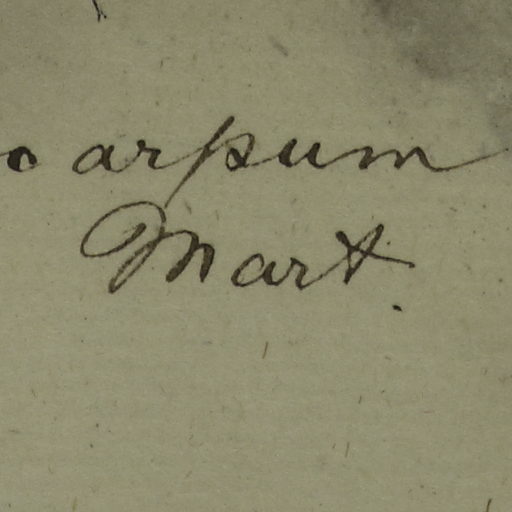 ocarpum
Mart.